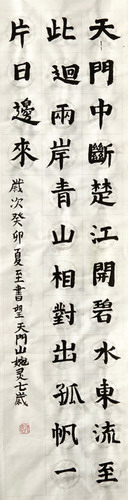 天門中斷楚江開碧水東流至
此迴兩岸青山相對出孤帆一
片日邊來
歲次癸卯夏至書望天門山婉灵七歲